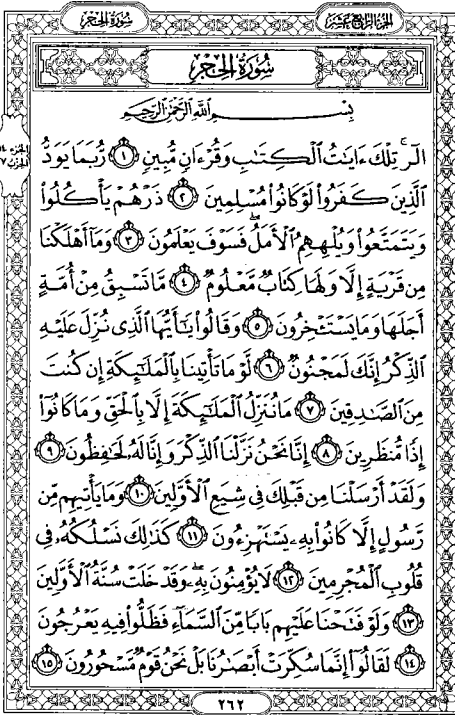 سُورَةُ الحِجْرِ
الجزء الرابع عشر
سُورَةُ الحِجْرِ
بِسْمِ اللَّهِ الرَّحْمَٰنِ الرَّحِيمِ
الٓرۚ تِلْكَ ءَايَٰتُ ٱلْكِتَٰبِ وَقُرْءَانٍ مُّبِينٍ ١ رُّبَمَا يَوَدُّ
ٱلَّذِينَ كَفَرُوا۟ لَوْ كَانُوا۟ مُسْلِمِينَ ٢ ذَرْهُمْ يَأْكُلُوا۟
وَيَتَمَتَّعُوا۟ وَيُلْهِهِمُ ٱلْأَمَلُۖ فَسَوْفَ يَعْلَمُونَ ٣ وَمَآ أَهْلَكْنَا
مِن قَرْيَةٍ إِلَّا وَلَهَا كِتَابٌ مَّعْلُومٌ ٤ مَّا تَسْبِقُ مِنْ أُمَّةٍ
أَجَلَهَا وَمَا يَسْتَـْٔخِرُونَ ٥ وَقَالُوا۟ يَٰٓأَيُّهَا ٱلَّذِى نُزِّلَ عَلَيْهِ
ٱلذِّكْرُ إِنَّكَ لَمَجْنُونٌ ٦ لَّوْ مَا تَأْتِينَا بِٱلْمَلَٰٓئِكَةِ إِن كُنتَ
مِنَ ٱلصَّٰدِقِينَ ٧ مَا نُنَزِّلُ ٱلْمَلَٰٓئِكَةَ إِلَّا بِٱلْحَقِّ وَمَا كَانُوٓا۟
إِذًا مُّنظَرِينَ ٨ إِنَّا نَحْنُ نَزَّلْنَا ٱلذِّكْرَ وَإِنَّا لَهُۥ لَحَٰفِظُونَ ٩
وَلَقَدْ أَرْسَلْنَا مِن قَبْلِكَ فِى شِيَعِ ٱلْأَوَّلِينَ ١٠ وَمَا يَأْتِيهِم مِّن
رَّسُولٍ إِلَّا كَانُوا۟ بِهِۦ يَسْتَهْزِءُونَ ١١ كَذَٰلِكَ نَسْلُكُهُۥ فِى
قُلُوبِ ٱلْمُجْرِمِينَ ١٢ لَا يُؤْمِنُونَ بِهِۦۖ وَقَدْ خَلَتْ سُنَّةُ ٱلْأَوَّلِينَ
١٣ وَلَوْ فَتَحْنَا عَلَيْهِم بَابًا مِّنَ ٱلسَّمَآءِ فَظَلُّوا۟ فِيهِ يَعْرُجُونَ
١٤ لَقَالُوٓا۟ إِنَّمَا سُكِّرَتْ أَبْصَٰرُنَا بَلْ نَحْنُ قَوْمٌ مَّسْحُورُونَ ١٥
٢٦٢